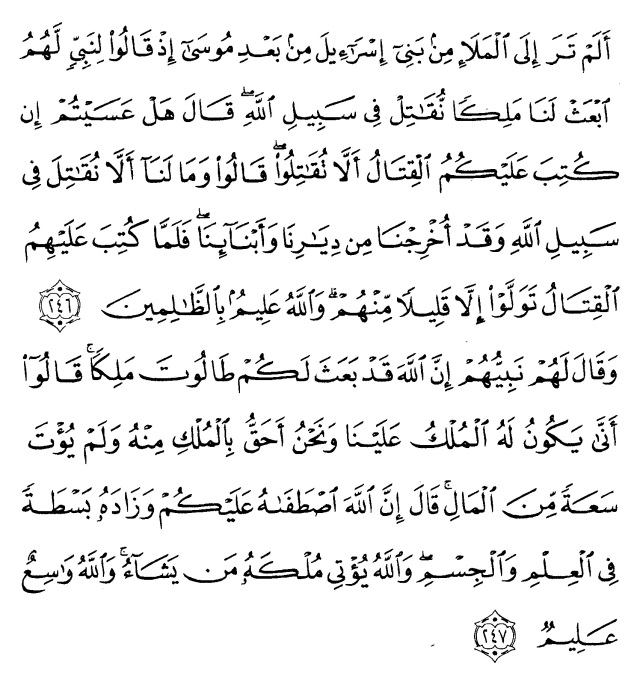 أَلَمْ تَرَ إِلَى ٱلْمَلَإِ مِنۢ بَنِىٓ إِسْرَٰٓءِيلَ مِنۢ بَعْدِ مُوسَىٰٓ إِذْ قَالُوا۟ لِنَبِىٍّ لَّهُمُ
ٱبْعَثْ لَنَا مَلِكًا نُّقَٰتِلْ فِى سَبِيلِ ٱللَّهِ ۖ قَالَ هَلْ عَسَيْتُمْ إِن
كُتِبَ عَلَيْكُمُ ٱلْقِتَالُ أَلَّا تُقَٰتِلُوا۟ ۖ قَالُوا۟ وَمَا لَنَآ أَلَّا نُقَٰتِلَ فِى
سَبِيلِ ٱللَّهِ وَقَدْ أُخْرِجْنَا مِن دِيَٰرِنَا وَأَبْنَآئِنَا ۖ فَلَمَّا كُتِبَ عَلَيْهِمُ
ٱلْقِتَالُ تَوَلَّوْا۟ إِلَّا قَلِيلًا مِّنْهُمْ ۗ وَٱللَّهُ عَلِيمٌۢ بِٱلظَّٰلِمِينَ ٢٤٦
وَقَالَ لَهُمْ نَبِيُّهُمْ إِنَّ ٱللَّهَ قَدْ بَعَثَ لَكُمْ طَالُوتَ مَلِكًا ۚ قَالُوٓا۟
أَنَّىٰ يَكُونُ لَهُ ٱلْمُلْكُ عَلَيْنَا وَنَحْنُ أَحَقُّ بِٱلْمُلْكِ مِنْهُ وَلَمْ يُؤْتَ
سَعَةً مِّنَ ٱلْمَالِ ۚ قَالَ إِنَّ ٱللَّهَ ٱصْطَفَىٰهُ عَلَيْكُمْ وَزَادَهُۥ بَسْطَةً
فِى ٱلْعِلْمِ وَٱلْجِسْمِ ۖ وَٱللَّهُ يُؤْتِى مُلْكَهُۥ مَن يَشَآءُ ۚ وَٱللَّهُ وَٰسِعٌ
عَلِيمٌ ٢٤٧